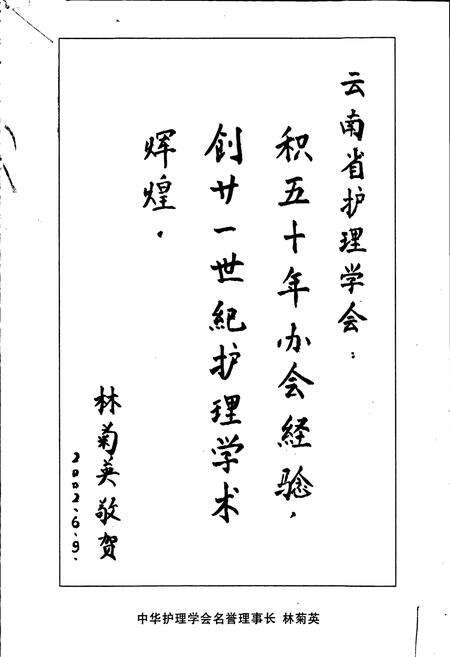 云南省护理学会：
积五十年办会经验，
创廿一世紀护理学术
辉煌。
林菊英敬贺
2002.6.9.
中华护理学会名誉理事长 林菊英